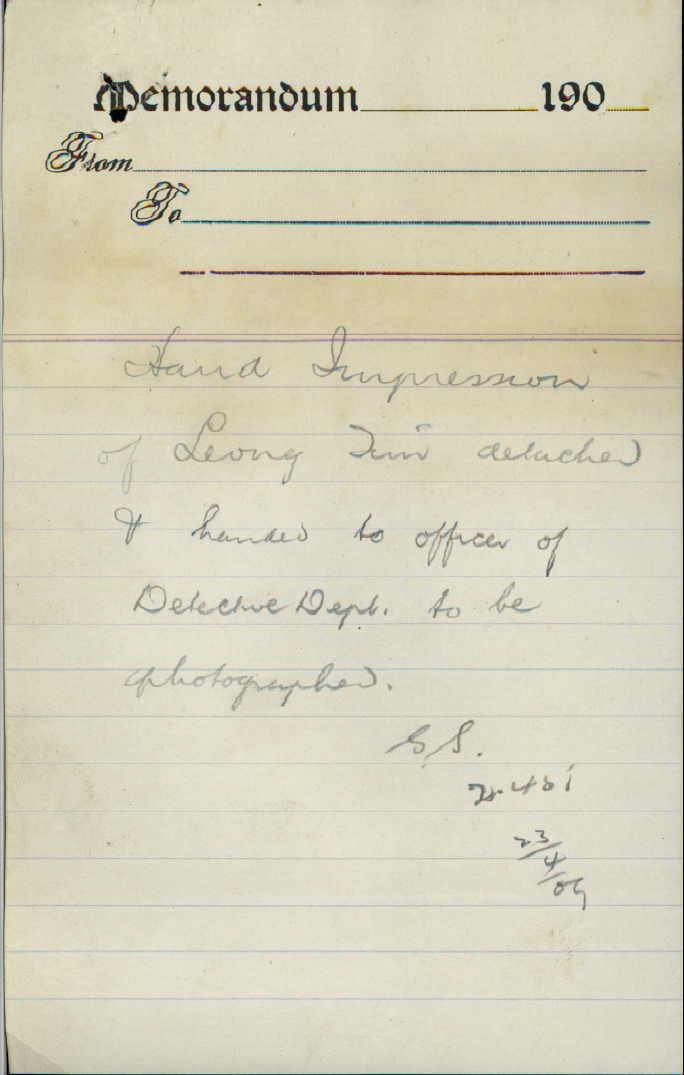 Memorandum 190
From
To
Hand Impression
of Leong Tim detached
& handed to officer of
Detective Dept. to be
photographed.
G.S.
23/4/09